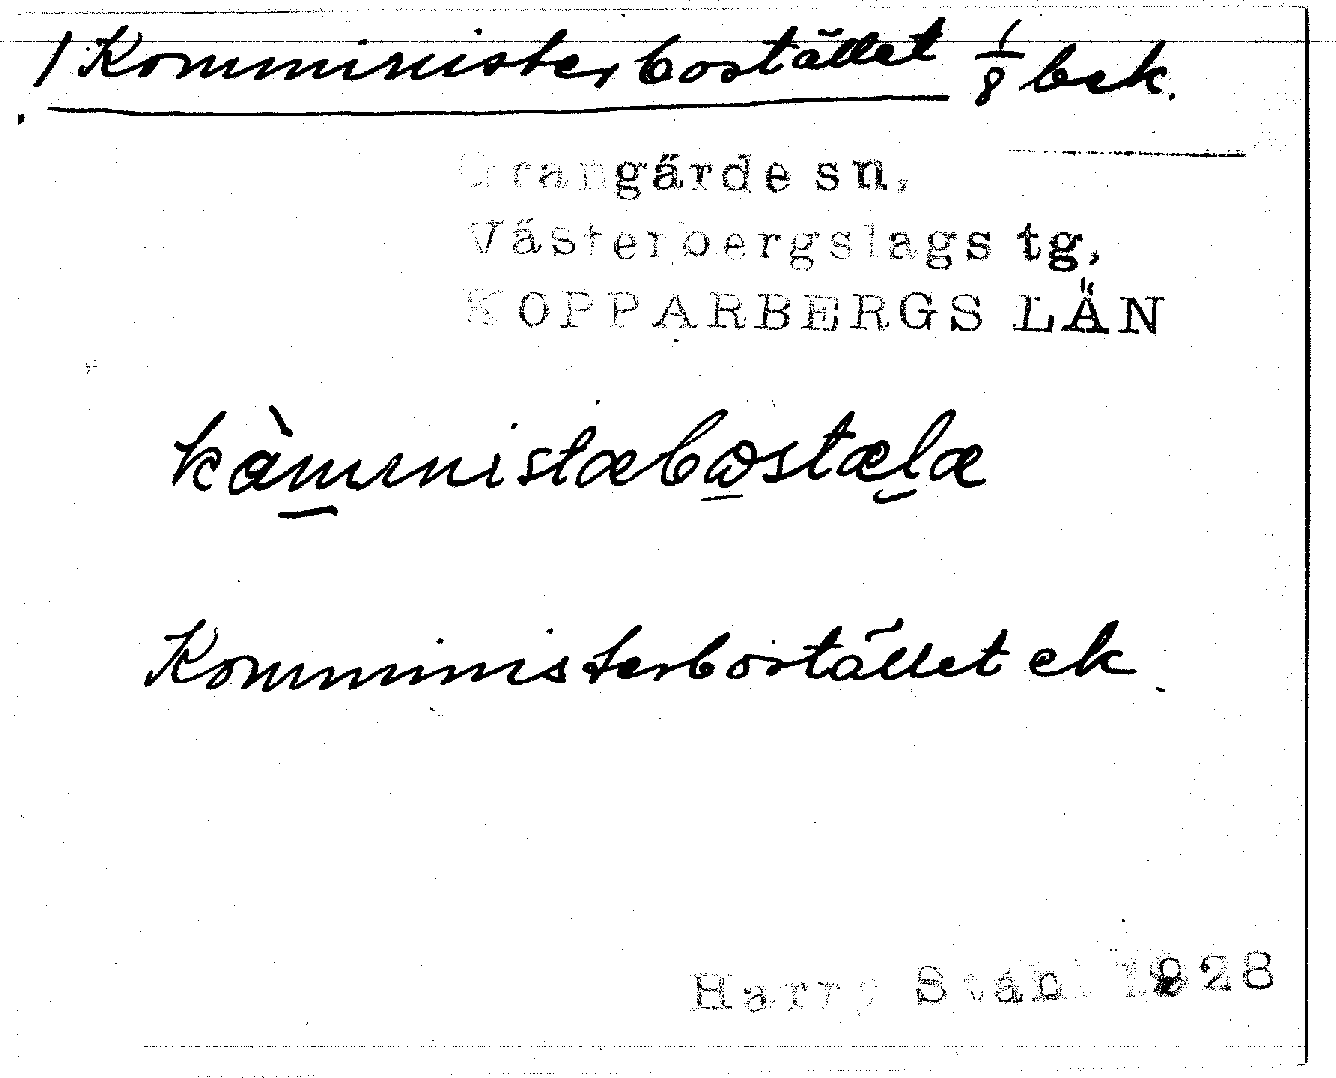 / Komministerbostället 1/8 bek.
Grangärde sn,
Västerbergslags tg,
KOPPARBERGS LÄN
kàmmistæbωstælæ
Komministerbostället ek
Harry Ståhl 1928